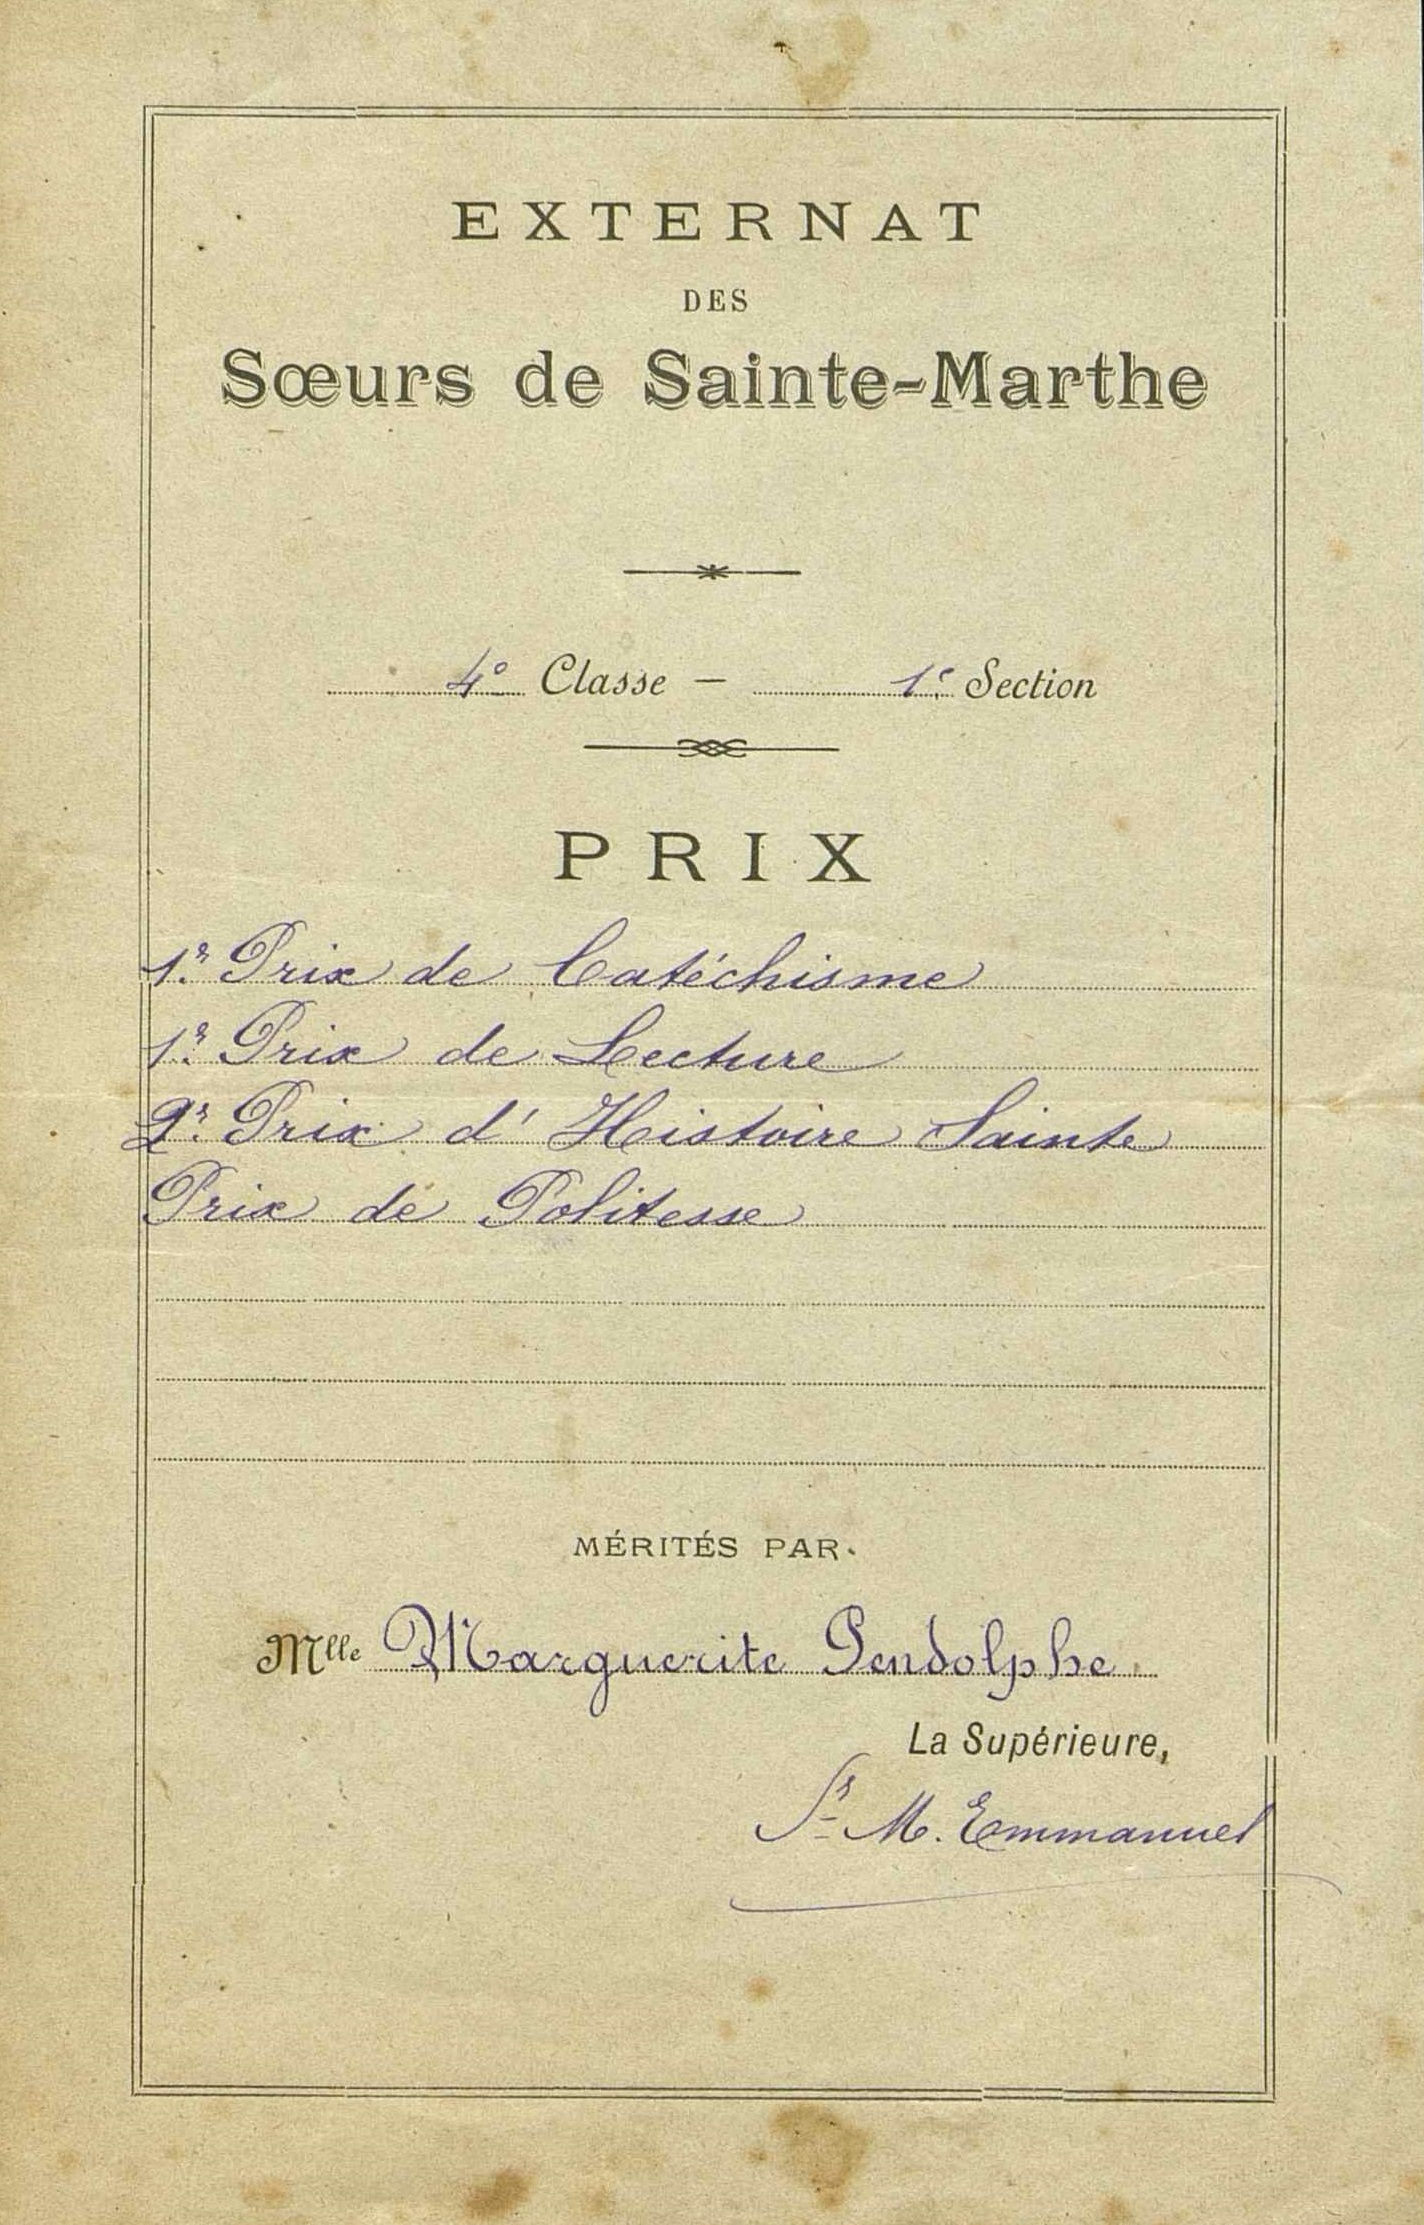 EXTERNAT
DES
Sœurs de Sainte-Marthe
4e Classe — 1e Section
PRIX
1r. Prix de Catéchisme
1r. Prix de Lecture
2r. Prix d'Histoire Sainte
Prix de Politesse
MÉRITÉS PAR.
Mlle Marguerite Pendolphe
La Supérieure,
Sr M. Emmanuel